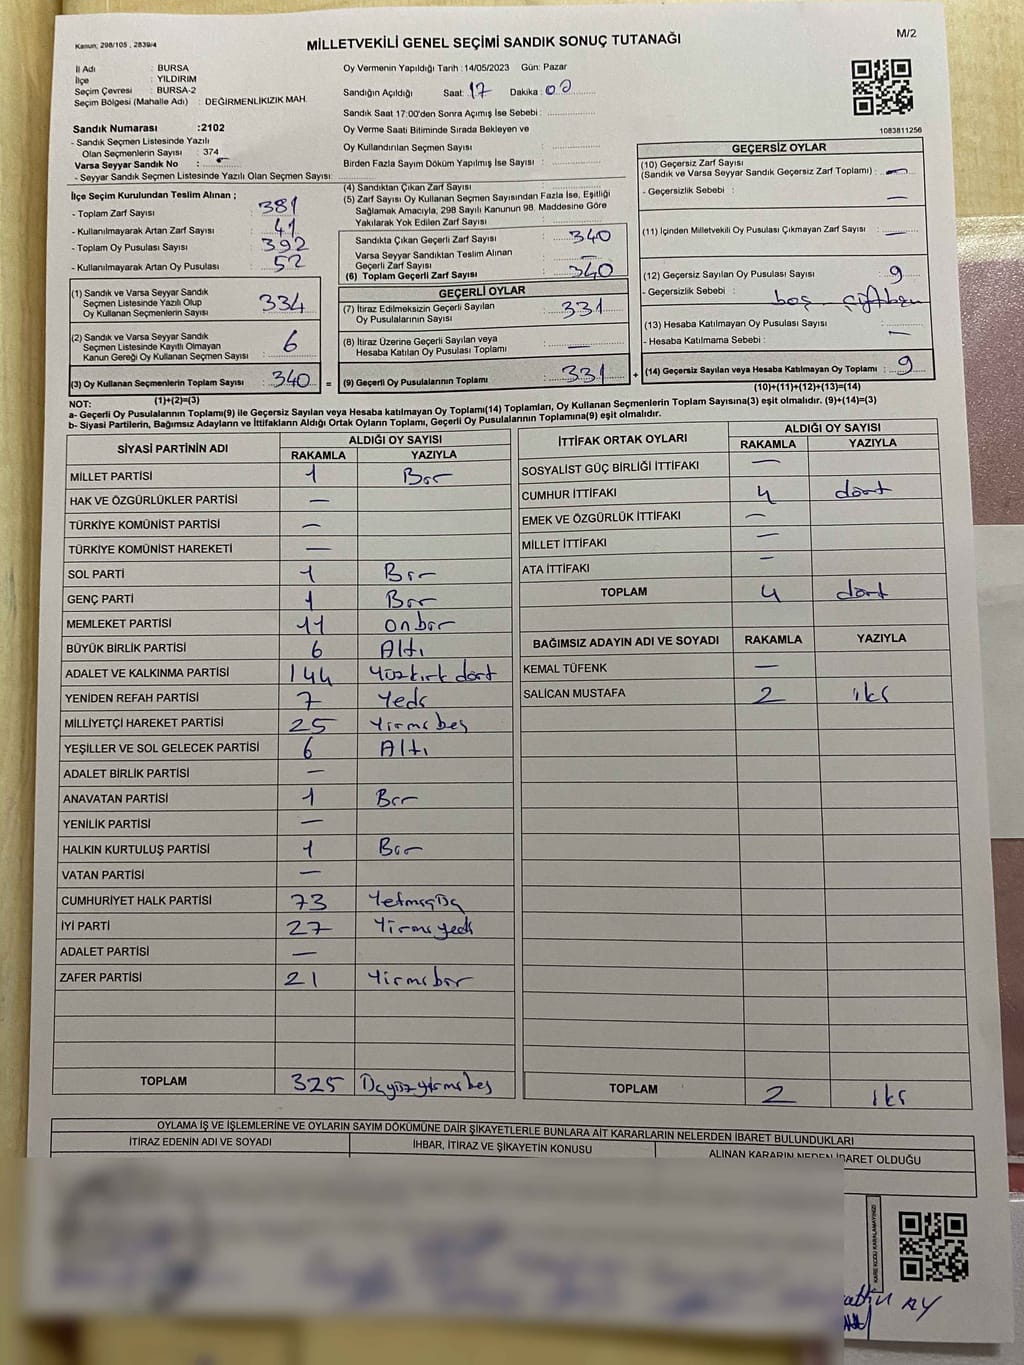 Kanun; 298/105 , 2839/4
MİLLETVEKİLİ GENEL SEÇİMİ SANDIK SONUÇ TUTANAĞI
M/2
İl Adı : BURSA
İlçe : YILDIRIM
Seçim Çevresi : BURSA-2
Seçim Bölgesi (Mahalle Adı) : DEĞİRMENLİKIZIK MAH.
Sandık Numarası :2102
- Sandık Seçmen Listesinde Yazılı
Olan Seçmenlerin Sayısı : 374
Varsa Seyyar Sandık No : -
- Seyyar Sandık Seçmen Listesinde Yazılı Olan Seçmen Sayısı:
Oy Vermenin Yapıldığı Tarih : 14/05/2023 Gün: Pazar
Sandığın Açıldığı Saat: 17 Dakika : 00
Sandık Saat 17:00'den Sonra Açımış İse Sebebi :
Oy Verme Saati Bitiminde Sırada Bekleyen ve
Oy Kullandırılan Seçmen Sayısı :
Birden Fazla Sayım Döküm Yapılmış İse Sayısı :
1083811256
İlçe Seçim Kurulundan Teslim Alınan ;
- Toplam Zarf Sayısı : 381
- Kullanılmayarak Artan Zarf Sayısı : 41
- Toplam Oy Pusulası Sayısı : 392
- Kullanılmayarak Artan Oy Pusulası : 52
(1) Sandık ve Varsa Seyyar Sandık
Seçmen Listesinde Yazılı Olup
Oy Kullanan Seçmenlerin Sayısı : 334
(2) Sandık ve Varsa Seyyar Sandık
Seçmen Listesinde Kayıtlı Olmayan
Kanun Gereği Oy Kullanan Seçmen Sayısı : 6
(3) Oy Kullanan Seçmenlerin Toplam Sayısı : 340 =
(1)+(2)=(3)
(4) Sandıktan Çıkan Zarf Sayısı :
(5) Zarf Sayısı Oy Kullanan Seçmen Sayısından Fazla İse, Eşitliği
Sağlamak Amacıyla, 298 Sayılı Kanunun 98. Maddesine Göre
Yakılarak Yok Edilen Zarf Sayısı :
Sandıkta Çıkan Geçerli Zarf Sayısı : 340
Varsa Seyyar Sandıktan Teslim Alınan
Geçerli Zarf Sayısı : -
(6) Toplam Geçerli Zarf Sayısı : 340
GEÇERLİ OYLAR
(7) İtiraz Edilmeksizin Geçerli Sayılan
Oy Pusulalarının Sayısı : 331
(8) İtiraz Üzerine Geçerli Sayılan veya
Hesaba Katılan Oy Pusulası Toplamı : -
(9) Geçerli Oy Pusulalarının Toplamı : 331 +
GEÇERSİZ OYLAR
(10) Geçersiz Zarf Sayısı
(Sandık ve Varsa Seyyar Sandık Geçersiz Zarf Toplamı) : -
- Geçersizlik Sebebi : -
(11) İçinden Milletvekili Oy Pusulası Çıkmayan Zarf Sayısı : -
(12) Geçersiz Sayılan Oy Pusulası Sayısı : 9
- Geçersizlik Sebebi : boş -
(13) Hesaba Katılmayan Oy Pusulası Sayısı :
- Hesaba Katılmama Sebebi : -
(14) Geçersiz Sayılan veya Hesaba Katılmayan Oy Toplamı : 9
(10)+(11)+(12)+(13)=(14)
NOT:
a- Geçerli Oy Pusulalarının Toplamı(9) ile Geçersiz Sayılan veya Hesaba katılmayan Oy Toplamı(14) Toplamları, Oy Kullanan Seçmenlerin Toplam Sayısına(3) eşit olmalıdır. (9)+(14)=(3)
b- Siyasi Partilerin, Bağımsız Adayların ve İttifakların Aldığı Ortak Oyların Toplamı, Geçerli Oy Pusulalarının Toplamına(9) eşit olmalıdır.
SİYASİ PARTİNİN ADI ALDIĞI OY SAYISI
RAKAMLA YAZIYLA
MİLLET PARTİSİ 1 Bir
HAK VE ÖZGÜRLÜKLER PARTİSİ -
TÜRKİYE KOMÜNİST PARTİSİ -
TÜRKİYE KOMÜNİST HAREKETİ -
SOL PARTİ 1 Bir
GENÇ PARTİ 1 Bir
MEMLEKET PARTİSİ 11 onbir
BÜYÜK BİRLİK PARTİSİ 6 Altı
ADALET VE KALKINMA PARTİSİ 144 Yüzkırk dört
YENİDEN REFAH PARTİSİ 7 Yedi
MİLLİYETÇİ HAREKET PARTİSİ 25 Yirmi beş
YEŞİLLER VE SOL GELECEK PARTİSİ 6 Altı
ADALET BİRLİK PARTİSİ -
ANAVATAN PARTİSİ 1 Bir
YENİLİK PARTİSİ -
HALKIN KURTULUŞ PARTİSİ 1 Bir
VATAN PARTİSİ -
CUMHURİYET HALK PARTİSİ 73 Yetmişüç
İYİ PARTİ 27 Yirmi yedi
ADALET PARTİSİ -
ZAFER PARTİSİ 21 Yirmi bir
TOPLAM 325 Üçyüzyirmi beş
İTTİFAK ORTAK OYLARI ALDIĞI OY SAYISI
RAKAMLA YAZIYLA
SOSYALİST GÜÇ BİRLİĞİ İTTİFAKI -
CUMHUR İTTİFAKI 4 dört
EMEK VE ÖZGÜRLÜK İTTİFAKI -
MİLLET İTTİFAKI -
ATA İTTİFAKI -
TOPLAM 4 dört
BAĞIMSIZ ADAYIN ADI VE SOYADI RAKAMLA YAZIYLA
KEMAL TÜFENK -
SALİCAN MUSTAFA 2 iki
TOPLAM 2 iki
OYLAMA İŞ VE İŞLEMLERİNE VE OYLARIN SAYIM DÖKÜMÜNE DAİR ŞİKAYETLERLE BUNLARA AİT KARARLARIN NELERDEN İBARET BULUNDUKLARI
İTİRAZ EDENİN ADI VE SOYADI İHBAR, İTİRAZ VE ŞİKAYETİN KONUSU ALINAN KARARIN NEDEN İBARET OLDUĞU
KARE KODU KARALAMAYINIZ!
AY